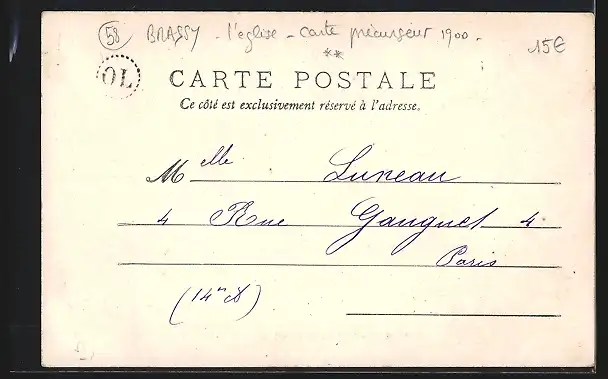 58 BRASSY - l'église - carte précurseur 1900 -
**
15€
OL
CARTE POSTALE
Ce côté est exclusivement réservé à l'adresse.
Melle Luneau
4 Rue Gauguet 4
Paris
(14e A)